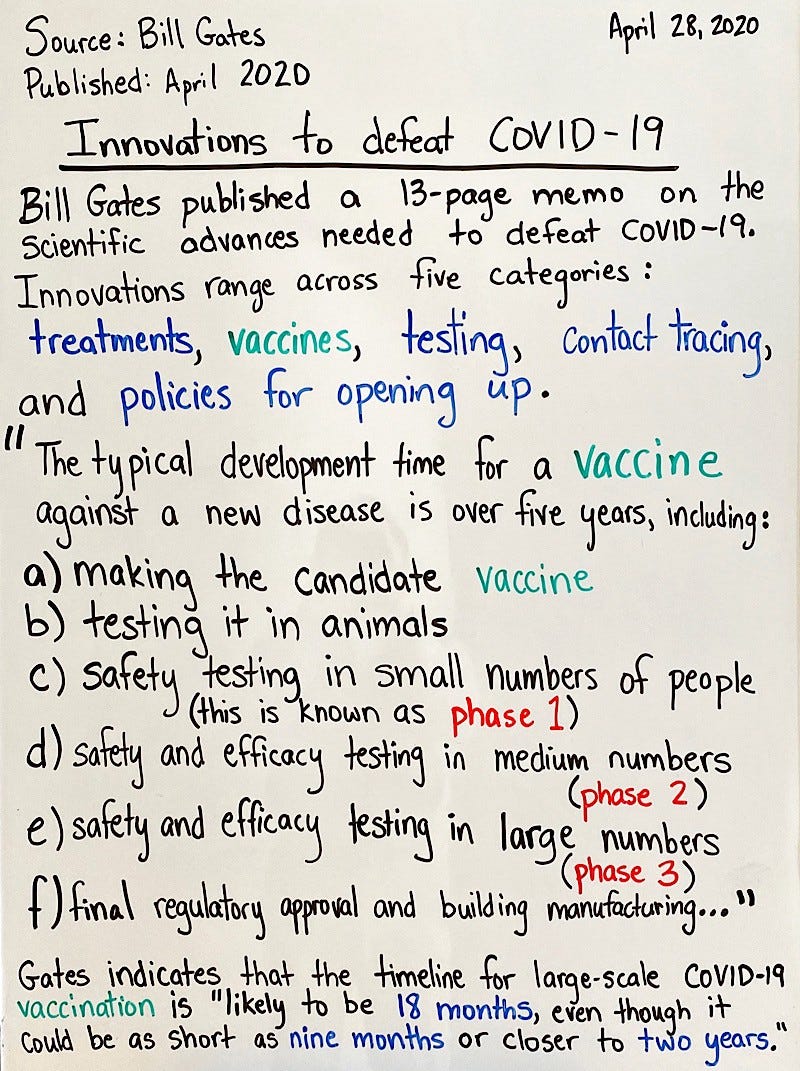 Source: Bill Gates
April 28, 2020
Published: April 2020
Innovations to defeat COVID-19
Bill Gates published a 13-page memo on the
scientific advances needed to defeat COVID-19.
Innovations range across five categories:
treatments, vaccines, testing, contact tracing,
and policies for opening up.
"The typical development time for a vaccine
against a new disease is over five years, including:
a) making the candidate vaccine
b) testing it in animals
c) safety testing in small numbers of people
(this is known as phase 1)
d) safety and efficacy testing in medium numbers
(phase 2)
e) safety and efficacy testing in large numbers
(phase 3)
f) final regulatory approval and building manufacturing..."
Gates indicates that the timeline for large-scale COVID-19
vaccination is "likely to be 18 months, even though it
could be as short as nine months or closer to two years."